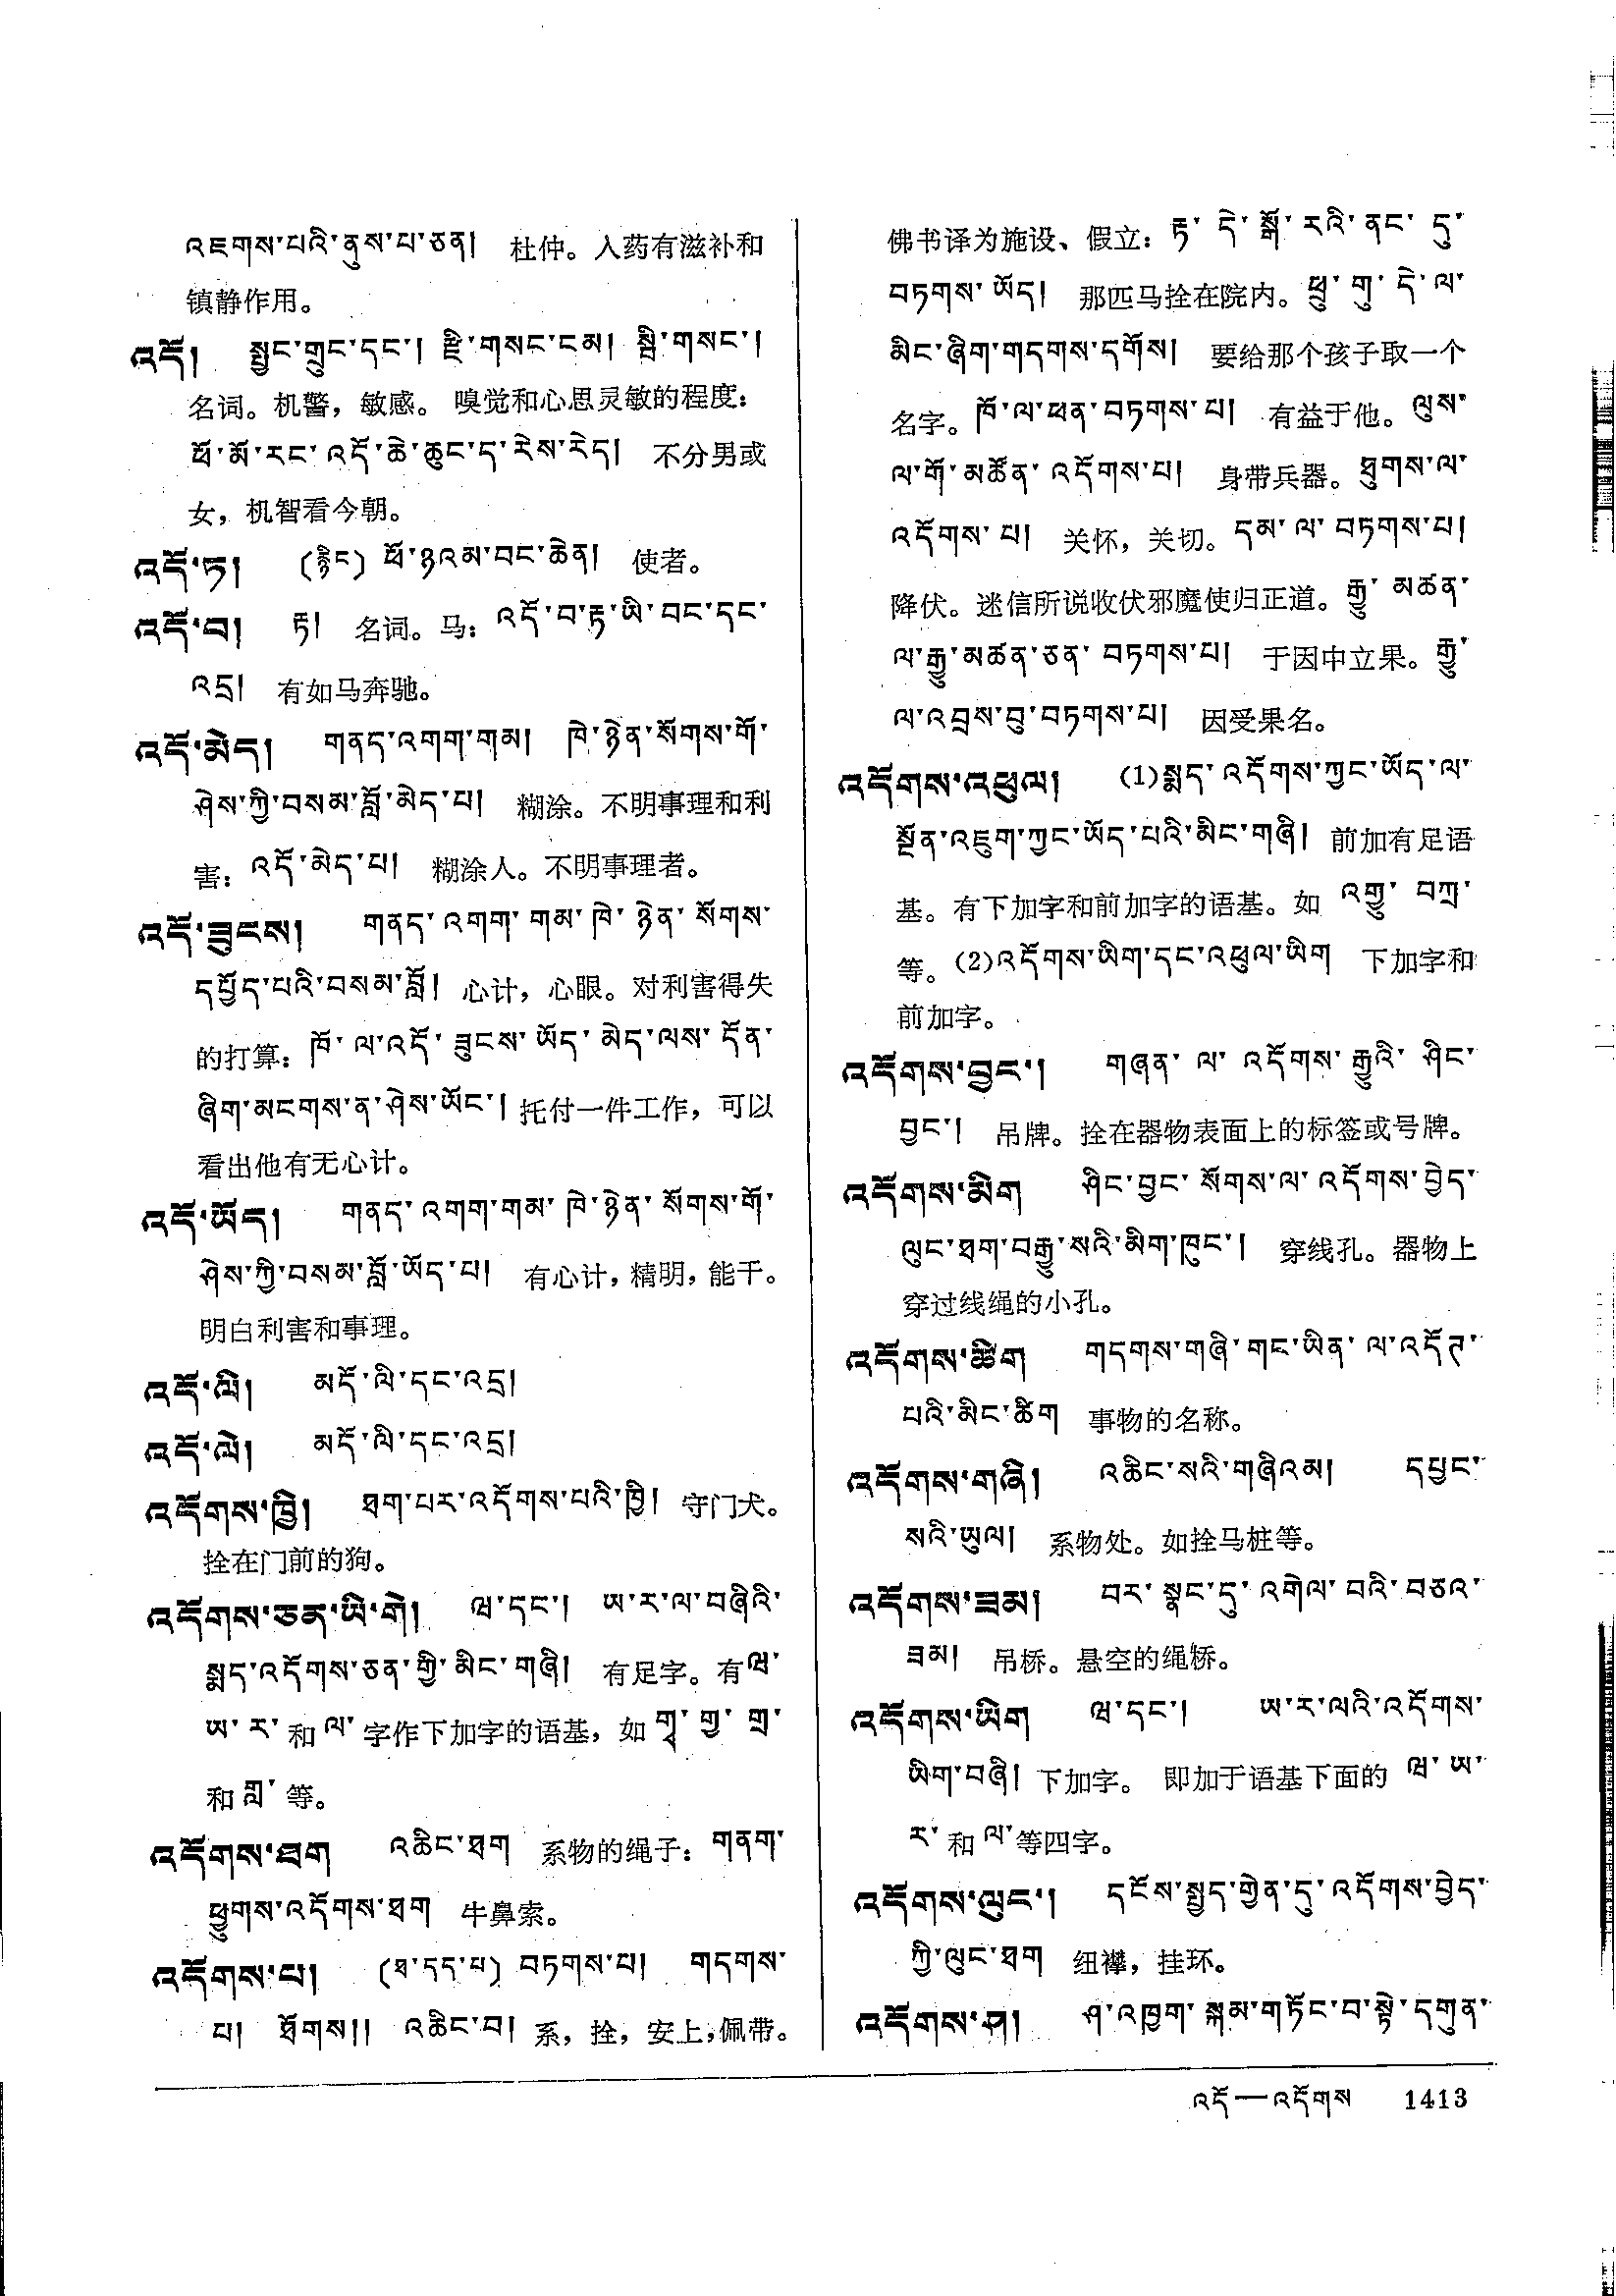 འཇགས་པའི་ནུས་པ་ཅན། 杜仲。入药有滋补和
镇静作用。
འདོ། སྤྱང་གྲུང་དང་། རྫི་གསང་ངམ། སྦྲི་གསང་།
名词。机警，敏感。 嗅觉和心思灵敏的程度：
ཕོ་མོ་རང་འདོ་ཆེ་ཆུང་ད་རེས་རེད། 不分男或
女，机智看今朝。
འདོ་ཏ། (རྙིང) ཕོ་ཉའམ་བང་ཆེན། 使者。
འདོ་བ། རྟ། 名词。马：འདོ་བ་རྟ་ཡི་བང་དང་
འདྲ། 有如马奔驰。
འདོ་མེད། གནད་འགག་གམ། ཁེ་ཉེན་སོགས་གོ་
ཤེས་ཀྱི་བསམ་བློ་མེད་པ། 糊涂。不明事理和利
害：འདོ་མེད་པ། 糊涂人。不明事理者。
འདོ་ཟུངས། གནད་འགག་གམ་ཁེ་ཉེན་སོགས་
དཔྱོད་པའི་བསམ་བློ། 心计，心眼。对利害得失
的打算：ཁོ་ལ་འདོ་ཟུངས་ཡོད་མེད་ལས་དོན་
ཞིག་མངགས་ན་ཤེས་ཡོང་། 托付一件工作，可以
看出他有无心计。
འདོ་ཡོད། གནད་འགག་གམ་ཁེ་ཉེན་སོགས་གོ་
ཤེས་ཀྱི་བསམ་བློ་ཡོད་པ། 有心计，精明，能干。
明白利害和事理。
འདོ་ལི། མདོ་ལི་དང་འདྲ།
འདོ་ལེ། མདོ་ལི་དང་འདྲ།
འདོགས་ཁྱི། ཐག་པར་འདོགས་པའི་ཁྱི། 守门犬。
拴在门前的狗。
འདོགས་ཅན་ཡི་གེ། ཝ་དང་། ཡ་ར་ལ་བཞིའི་
སྨད་འདོགས་ཅན་གྱི་མིང་གཞི། 有足字。有ཝ་
ཡ་ར་和ལ་字作下加字的语基，如གྭ་གྱ་གྲ་
和གླ་等。
འདོགས་ཐག འཆིང་ཐག 系物的绳子：གནག་
ཕྱུགས་འདོགས་ཐག 牛鼻索。
འདོགས་པ། (ཐ་དད་པ) བཏགས་པ། གདགས་
པ། ཐོགས།། འཆིང་བ། 系，拴，安上，佩带。
佛书译为施设、假立：རྟ་དེ་སྒོ་རའི་ནང་དུ་
བཏགས་ཡོད། 那匹马拴在院内。ཕྲུ་གུ་དེ་ལ་
མིང་ཞིག་གདགས་དགོས། 要给那个孩子取一个
名字。ཁོ་ལ་ཕན་བཏགས་པ། 有益于他。ལུས་
ལ་གོ་མཚོན་འདོགས་པ། 身带兵器。ཐུགས་ལ་
འདོགས་པ། 关怀，关切。དམ་ལ་བཏགས་པ།
降伏。迷信所说收伏邪魔使归正道。རྒྱུ་མཚན་
ལ་རྒྱུ་མཚན་ཅན་བཏགས་པ། 于因中立果。རྒྱུ་
ལ་འབྲས་བུ་བཏགས་པ། 因受果名。
འདོགས་འཕུལ། (1)སྨད་འདོགས་ཀྱང་ཡོད་ལ་
སྔོན་འཇུག་ཀྱང་ཡོད་པའི་མིང་གཞི། 前加有足语
基。有下加字和前加字的语基。如 འགྱུ་ བཀྲ་
等。(2)འདོགས་ཡིག་དང་འཕུལ་ཡིག 下加字和
前加字。
འདོགས་བྱང་། གཞན་ལ་འདོགས་རྒྱུའི་ཤིང་
བྱང་། 吊牌。拴在器物表面上的标签或号牌。
འདོགས་མིག ཤིང་བྱང་སོགས་ལ་འདོགས་བྱེད་
ལུང་ཐག་བརྒྱུ་སའི་མིག་ཁུང་། 穿线孔。器物上
穿过线绳的小孔。
འདོགས་ཚིག གདགས་གཞི་གང་ཡིན་ལ་འདོཊ་
པའི་མིང་ཚིག 事物的名称。
འདོགས་གཞི། འཆིང་སའི་གཞིའམ། དཔྱང་
སའི་ཡུལ། 系物处。如拴马桩等。
འདོགས་ཟམ། བར་སྣང་དུ་འགེལ་བའི་བཅའ་
ཟམ། 吊桥。悬空的绳桥。
འདོགས་ཡིག ཝ་དང་། ཡ་ར་ལའི་འདོགས་
ཡིག་བཞི། 下加字。 即加于语基下面的 ཝ་ཡ་
ར་和ལ་等四字。
འདོགས་ལུང་། དངོས་སྤྱད་གྱེན་དུ་འདོགས་བྱེད་
ཀྱི་ལུང་ཐག 纽襻，挂环。
འདོགས་ཤ། ཤ་འཁྱག་སྐམ་གཏོང་བ་སྟེ་དགུན་
འདོ—འདོགས 1413